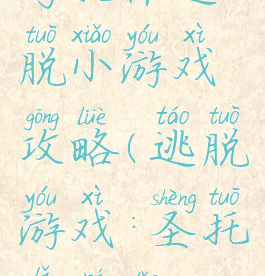 tuō xiǎo yóu xì
脱小游戏
gōng lüè táo tuō
攻略(逃脱
yóu xì shèng tuō
游戏:圣托